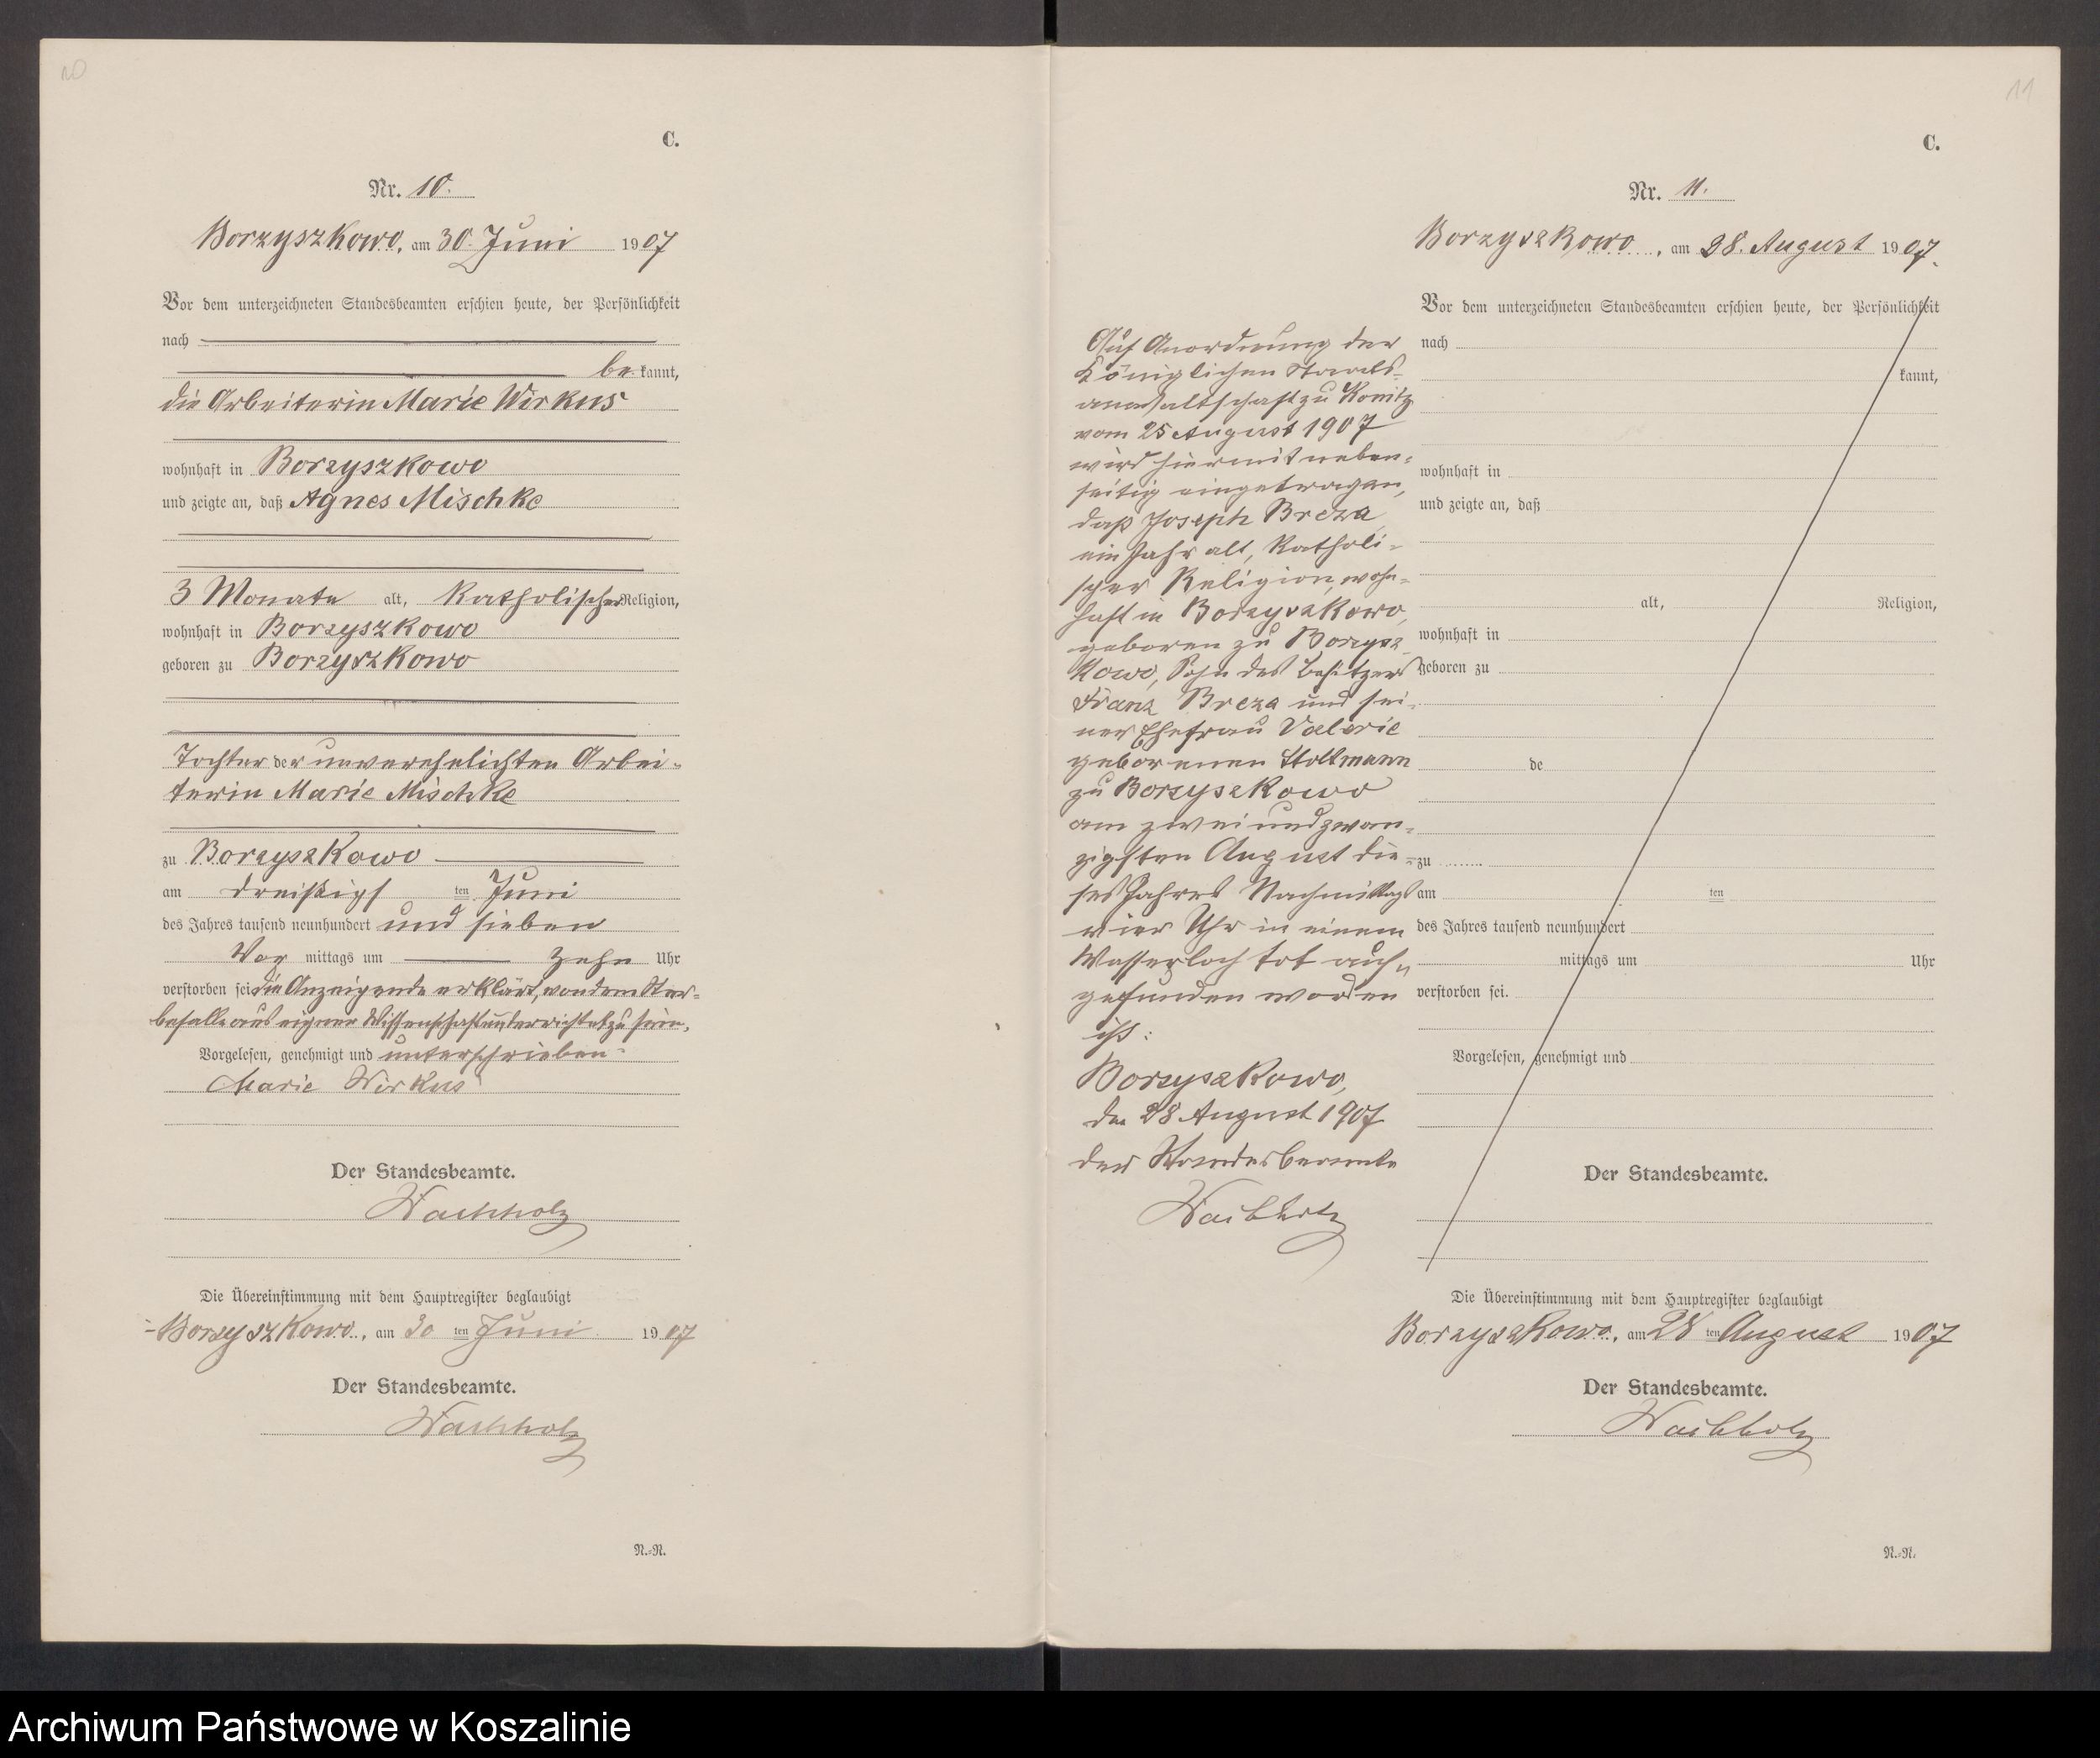 10
C.
Nr. 10.
Borzyszkowo, am 30. Juni 1907
Vor dem unterzeichneten Standesbeamten erschien heute, der Persönlichkeit
nach
be kannt,
die Arbeiterin Marie Wirkus
wohnhaft in Borzyszkowo
und zeigte an, daß Agnes Mischke
3 Monate alt, Katholischer Religion,
wohnhaft in Borzyszkowo
geboren zu Borzyszkowo
Tochter der unverehelichten Arbei-
terin Marie Mischke
zu Borzyszkowo
am dreißigs ten Juni
des Jahres tausend neunhundert und sieben
Vor mittags um zehn Uhr
verstorben sei die Anzeigende erklärt, von dem Ster-
befalle aus eigner Wissenschaft unterrichtet zu sein.
Vorgelesen, genehmigt und unterschrieben
Marie Wirkus
Der Standesbeamte.
Wachholz
Die Übereinstimmung mit dem Hauptregister beglaubigt
Borzyszkowo, am 30 ten Juni 1907
Der Standesbeamte.
Wachholz
N.-N.
11
C.
Nr. 11.
Borzyszkowo, am 28. August 1907.
Vor dem unterzeichneten Standesbeamten erschien heute, der Persönlichkeit
nach
kannt,
wohnhaft in
und zeigte an, daß
alt, Religion,
wohnhaft in
geboren zu
de
zu
am ten
des Jahres tausend neunhundert
mittags um Uhr
verstorben sei.
Vorgelesen, genehmigt und
Der Standesbeamte.
Auf Anordnung der
Königlichen Staats-
anwaltschaft zu Konitz
vom 25 August 1907
wird hiermit neben-
seitig eingetragen,
daß Joseph Breza,
ein Jahr alt, Katholi-
scher Religion, wohn-
haft in Borzyszkowo,
geboren zu Borzysz-
kowo, Sohn des Besitzers
Franz Breza und sei-
ner Ehefrau Valerie
geborenen Stoltmann
zu Borzyszkowo
am zweiundzwan-
zigsten August die-
ses Jahres Nachmittags
vier Uhr in einem
Wasserloch tot auf-
gefunden worden
ist.
Borzyszkowo,
den 28 August 1907
der Standesbeamte
Wachholz
Die Übereinstimmung mit dem Hauptregister beglaubigt
Borzyszkowo, am 28 ten August 1907
Der Standesbeamte.
Wachholz
N.-N.
Archiwum Państwowe w Koszalinie